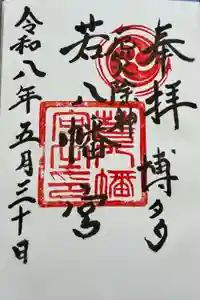 奉拝 博多
厄除神
若八幡宮
令和八年五月三十日